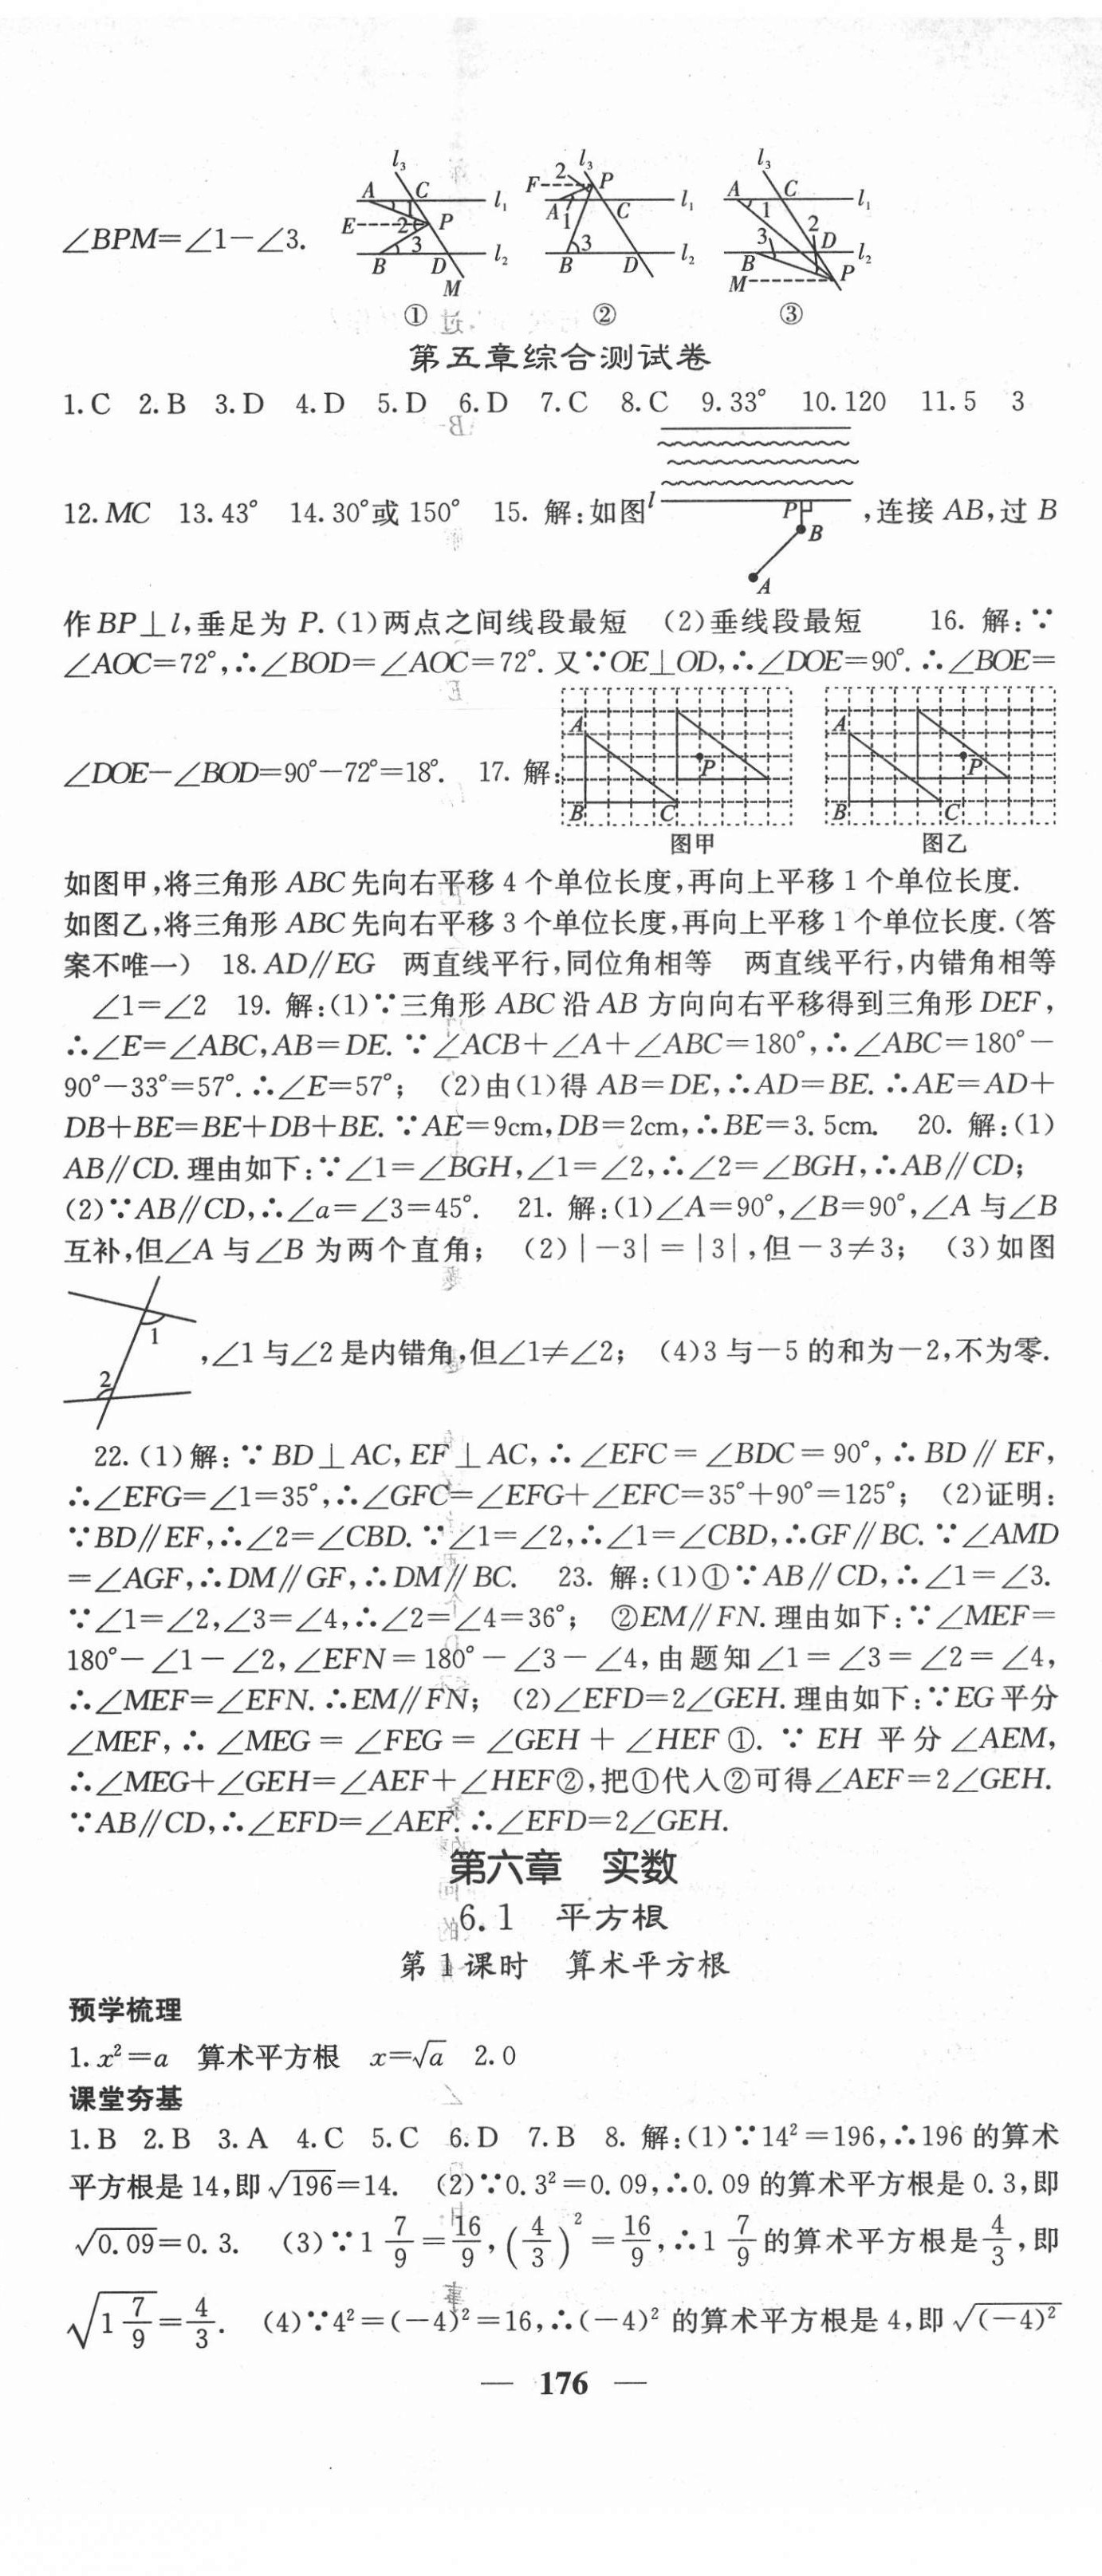 ∠BPM=∠1−∠3.
l₃ A C l₁ 1 E 2 P 3 B D l₂ M ①
l₃ 2 F P A 1 C l₁ 3 B D l₂ ②
l₃ A C l₁ 1 2 3 D B l₂ M P ③
第五章综合测试卷
1.C 2.B 3.D 4.D 5.D 6.D 7.C 8.C 9.33° 10.120 11.5 3
12.MC 13.43° 14.30°或 150° 15. 解:如图 l P B A ,连接 AB,过 B
作BP⊥l,垂足为 P.(1)两点之间线段最短 (2)垂线段最短 16. 解:∵
∠AOC=72°,∴∠BOD=∠AOC=72°.又∵OE⊥OD,∴∠DOE=90°.∴∠BOE=
∠DOE−∠BOD=90°−72°=18°. 17. 解:
A B C P 图甲
A B C P 图乙
如图甲,将三角形 ABC 先向右平移 4 个单位长度,再向上平移 1 个单位长度.
如图乙,将三角形 ABC 先向右平移 3 个单位长度,再向上平移 1 个单位长度.(答
案不唯一) 18.AD∥EG 两直线平行,同位角相等 两直线平行,内错角相等
∠1=∠2 19. 解:(1)∵三角形 ABC 沿 AB 方向向右平移得到三角形 DEF,
∴∠E=∠ABC,AB=DE. ∵∠ACB+∠A+∠ABC=180°,∴∠ABC=180°−
90°−33°=57°.∴∠E=57°; (2)由(1)得 AB=DE,∴AD=BE. ∴AE=AD+
DB+BE=BE+DB+BE. ∵AE=9cm,DB=2cm,∴BE=3.5cm. 20. 解:(1)
AB∥CD.理由如下:∵∠1=∠BGH,∠1=∠2,∴∠2=∠BGH,∴AB∥CD;
(2)∵AB∥CD,∴∠a=∠3=45°. 21. 解:(1)∠A=90°,∠B=90°,∠A 与∠B
互补,但∠A 与∠B 为两个直角; (2)|−3|=|3|,但−3≠3; (3)如图
1 2 ,∠1与∠2是内错角,但∠1≠∠2; (4)3 与−5 的和为−2,不为零.
22.(1)解:∵BD⊥AC,EF⊥AC,∴∠EFC=∠BDC=90°,∴BD∥EF,
∴∠EFG=∠1=35°,∴∠GFC=∠EFG+∠EFC=35°+90°=125°; (2)证明:
∵BD∥EF,∴∠2=∠CBD.∵∠1=∠2,∴∠1=∠CBD,∴GF∥BC. ∵∠AMD
=∠AGF,∴DM∥GF,∴DM∥BC. 23. 解:(1)①∵AB∥CD,∴∠1=∠3.
∵∠1=∠2,∠3=∠4,∴∠2=∠4=36°; ②EM∥FN.理由如下:∵∠MEF=
180°−∠1−∠2,∠EFN=180°−∠3−∠4,由题知∠1=∠3=∠2=∠4,
∴∠MEF=∠EFN.∴EM∥FN; (2)∠EFD=2∠GEH.理由如下:∵EG平分
∠MEF,∴∠MEG=∠FEG=∠GEH+∠HEF①. ∵EH 平分∠AEM,
∴∠MEG+∠GEH=∠AEF+∠HEF②,把①代入②可得∠AEF=2∠GEH.
∵AB∥CD,∴∠EFD=∠AEF.∴∠EFD=2∠GEH.
第六章 实数
6.1 平方根
第1课时 算术平方根
预学梳理
1.x²=a 算术平方根 x=√a 2.0
课堂夯基
1.B 2.B 3.A 4.C 5.C 6.D 7.B 8. 解:(1)∵14²=196,∴196 的算术
平方根是 14,即√196=14. (2)∵0.3²=0.09,∴0.09 的算术平方根是 0.3,即
√0.09=0.3. (3)∵1 7/9=16/9,(4/3)²=16/9,∴1 7/9的算术平方根是4/3,即
√(1 7/9)=4/3. (4)∵4²=(−4)²=16,∴(−4)² 的算术平方根是 4,即√(−4)²
— 176 —